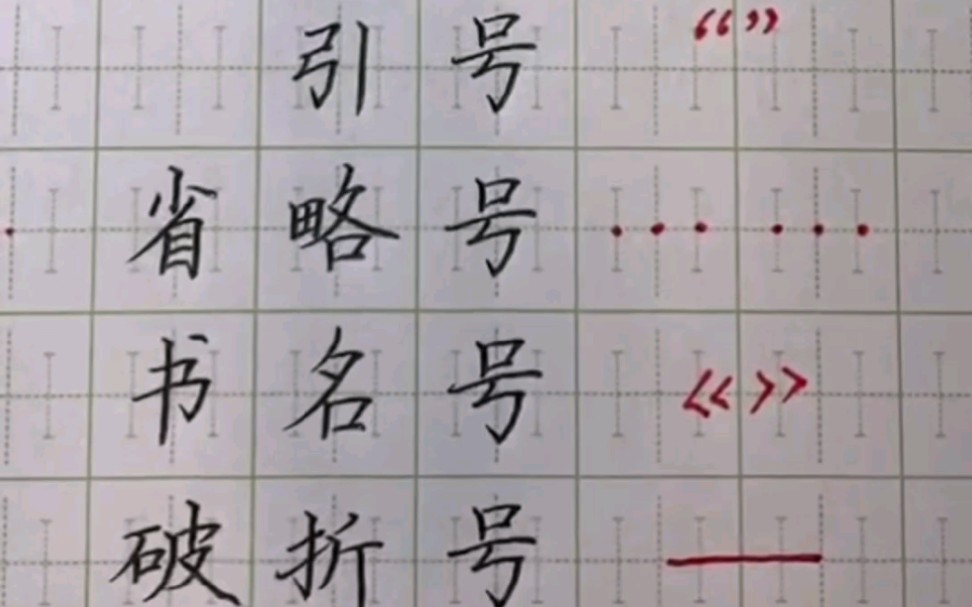 引号 “”
省略号 ……
书名号 《》
破折号 —